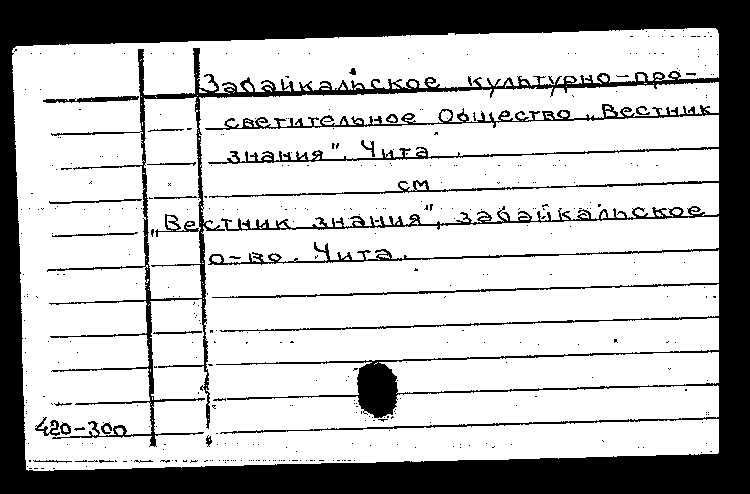 Забайкальское культурно-про-
светительное Общество „Вестник
знания". Чита.
см
„Вестник знания", забайкальское
о-во. Чита.
420-300